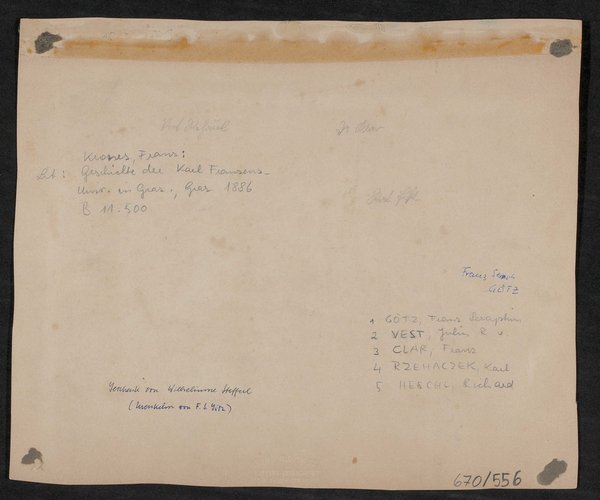 Krones, Franz:
Lit: Geschichte der Karl Franzens-
Univ. in Graz., Graz 1886
B 11.500
Franz Seraph
GÖTZ
1 GÖTZ, Franz Seraphin
2 VEST, Julius R v
3 CLAR, Franz
4 RZEHACZEK, Karl
5 HESCHL, Richard
Geschenk von Wilhelmine
von F. S. Götz)
670/556